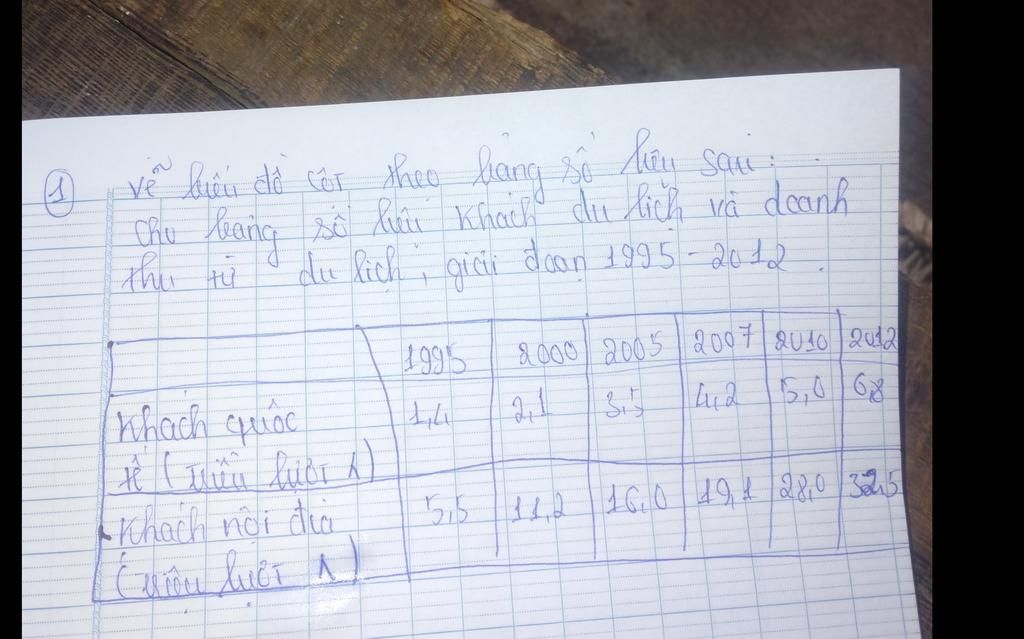 1 Vẽ biểu đồ cột theo bảng số liệu sau:
Cho bảng số liệu khách du lịch và doanh
thu từ du lịch, giai đoạn 1995-2012.
1995 2000 2005 2007 2010 2012
Khách quốc 1,4 2,1 3,5 4,2 5,0 6,8
tế (triệu lượt
Khách nội địa 5,5 11,2 16,0 19,1 28,0 32,5
(triệu lượt